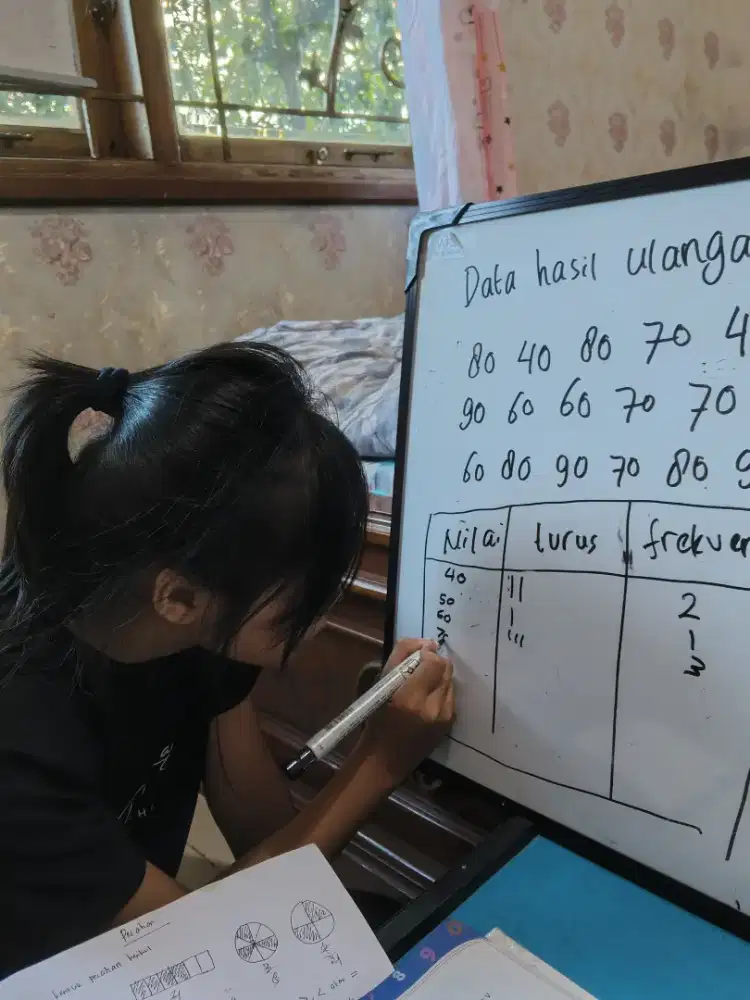 Data hasil ulanga
80 40 80 70 4
90 60 60 70 70
60 80 90 70 80 9
Nilai turus frekuen
40 || 2
50 | 1
60 ||| 3
70
Pecahan
pecahan berikut